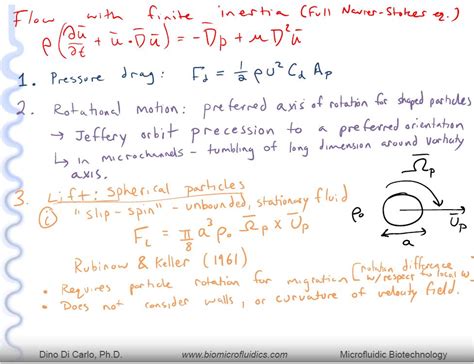 Flow with finite inertia (Full Navier-Stokes eq.)
ρ(∂ū/∂t + ū·∇̄ū) = -∇̄p + μ∇²ū
1. Pressure drag: F_d = 1/2 ρU²C_d A_p
2. Rotational motion: preferred axis of rotation for shaped particles
→ Jeffery orbit precession to a preferred orientation
↳ in microchannels - tumbling of long dimension around vorticity
axis.
3. Lift: Spherical particles
ⓘ "slip-spin" - unbounded, stationary fluid
F_L = π/8 a³ ρ₀ Ω̄_p × Ū_p
Rubinow & Keller (1961)
• Requires particle rotation for migration [rotation difference
w/respect to local fluid]
• Does not consider walls, or curvature of velocity field.
Ω̄_p
ρ₀
Ū_p
a
Dino Di Carlo, Ph.D. www.biomicrofluidics.com Microfluidic Biotechnology